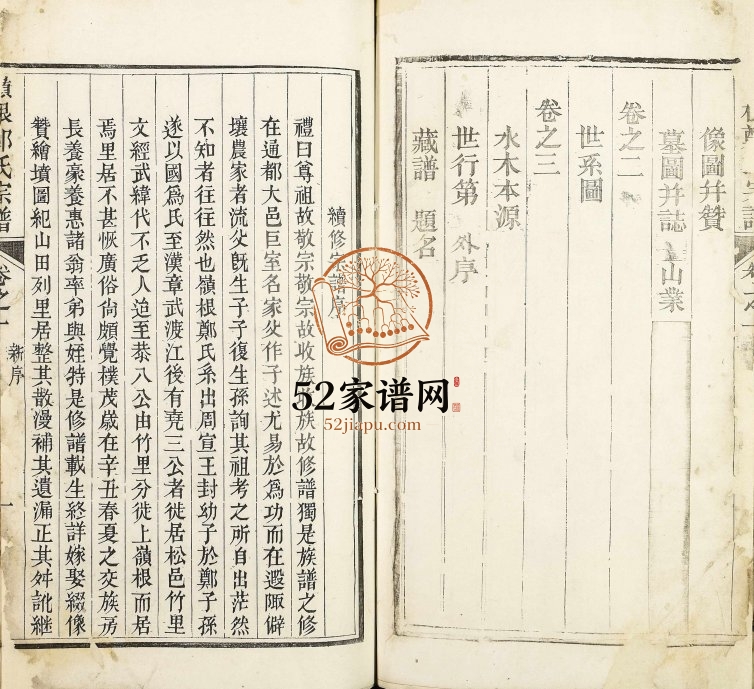 像圖幷贊
墓圖幷誌 山業
卷之二
世系圖
卷之三
水木本源
世行第 外序
藏譜 題名
續修宗譜序
禮曰尊祖故敬宗敬宗故收族收族故修譜獨是族譜之修
在通都大邑巨室名家父作子述尤易於為功而在遐陬僻
壤農家者流父旣生子子復生孫詢其祖考之所自出茫然
不知者往往然也嶺根鄭氏系出周宣王封幼子於鄭子孫
遂以國爲氏至漢章武渡江後有堯三公者徙居松邑竹里
文經武緯代不乏人迨至恭八公由竹里分徙上嶺根而居
焉里居不甚恢廣俗尙頗覺樸茂歲在辛丑春夏之交族房
長養豪養惠諸翁率弟與姪特是修譜載生終詳嫁娶綴像
贊繪墳圖紀山田列里居整其散漫補其遺漏正其舛訛継
嶺根鄭氏宗譜 卷之一 新序 一
52家谱网
52jiapu.com